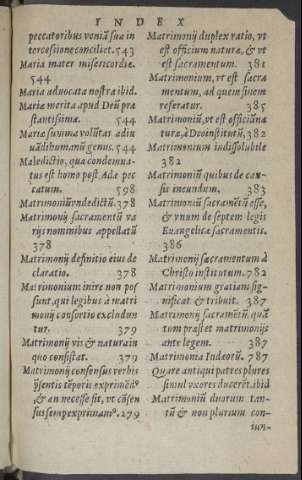 INDEX
peccatoribus veniã sua in
tercessione conciliet. 543
Maria mater misericordiæ.
544
Maria aduocata nostra ibid.
Mariæ merita apud Deũ præ
stantissima. 544
Mariæ summa volũtas adiu
uãdi humanũ genus. 544
Maledictio, qua condemna-
tus est homo post Adæ pec
catum. 598
Matrimoniũ vnde dictũ. 378
Matrimonij sacramentũ va
rijs nominibus appellatũ
378
Matrimonij definitio eius de
claratio. 378
Matrimonium inire non pos
sunt, qui legibus à matri
monij consortio excludun
tur. 379
Matrimonij vis & natura in
quo consistat. 379
Matrimonij consensus verbis
& an necesse sit, vt cõsen
sus semper 279
Matrimonij duplex ratio, vt
est officium naturæ, & vt
est sacramentum. 381
Matrimonium, vt est sacra
mentum, ad quem finem
referatur. 385
Matrimoniũ, vt est officiũ na
turæ, à Deo institutũ, 382
Matrimonium indissolubile
382
Matrimoniũ quibus de cau-
sis ineundum. 383
Matrimoniũ sacramẽtũ esse,
& vnum de septem legis
Euangelicæ sacramentis.
386
Matrimonij sacramentum à
Christo institutum. 782
Matrimonium gratiam sig-
nificat & tribuit. 387
Matrimonij sacramẽtũ quã
tum præstet matrimonijs
ante legem. 387
Matrimonia Iudæorũ. 787
Quare antiqui patres plures
simul vxores ducerẽt. ibid
Matrimoniũ duorum tan-
tũ & non plurium con-
iun-